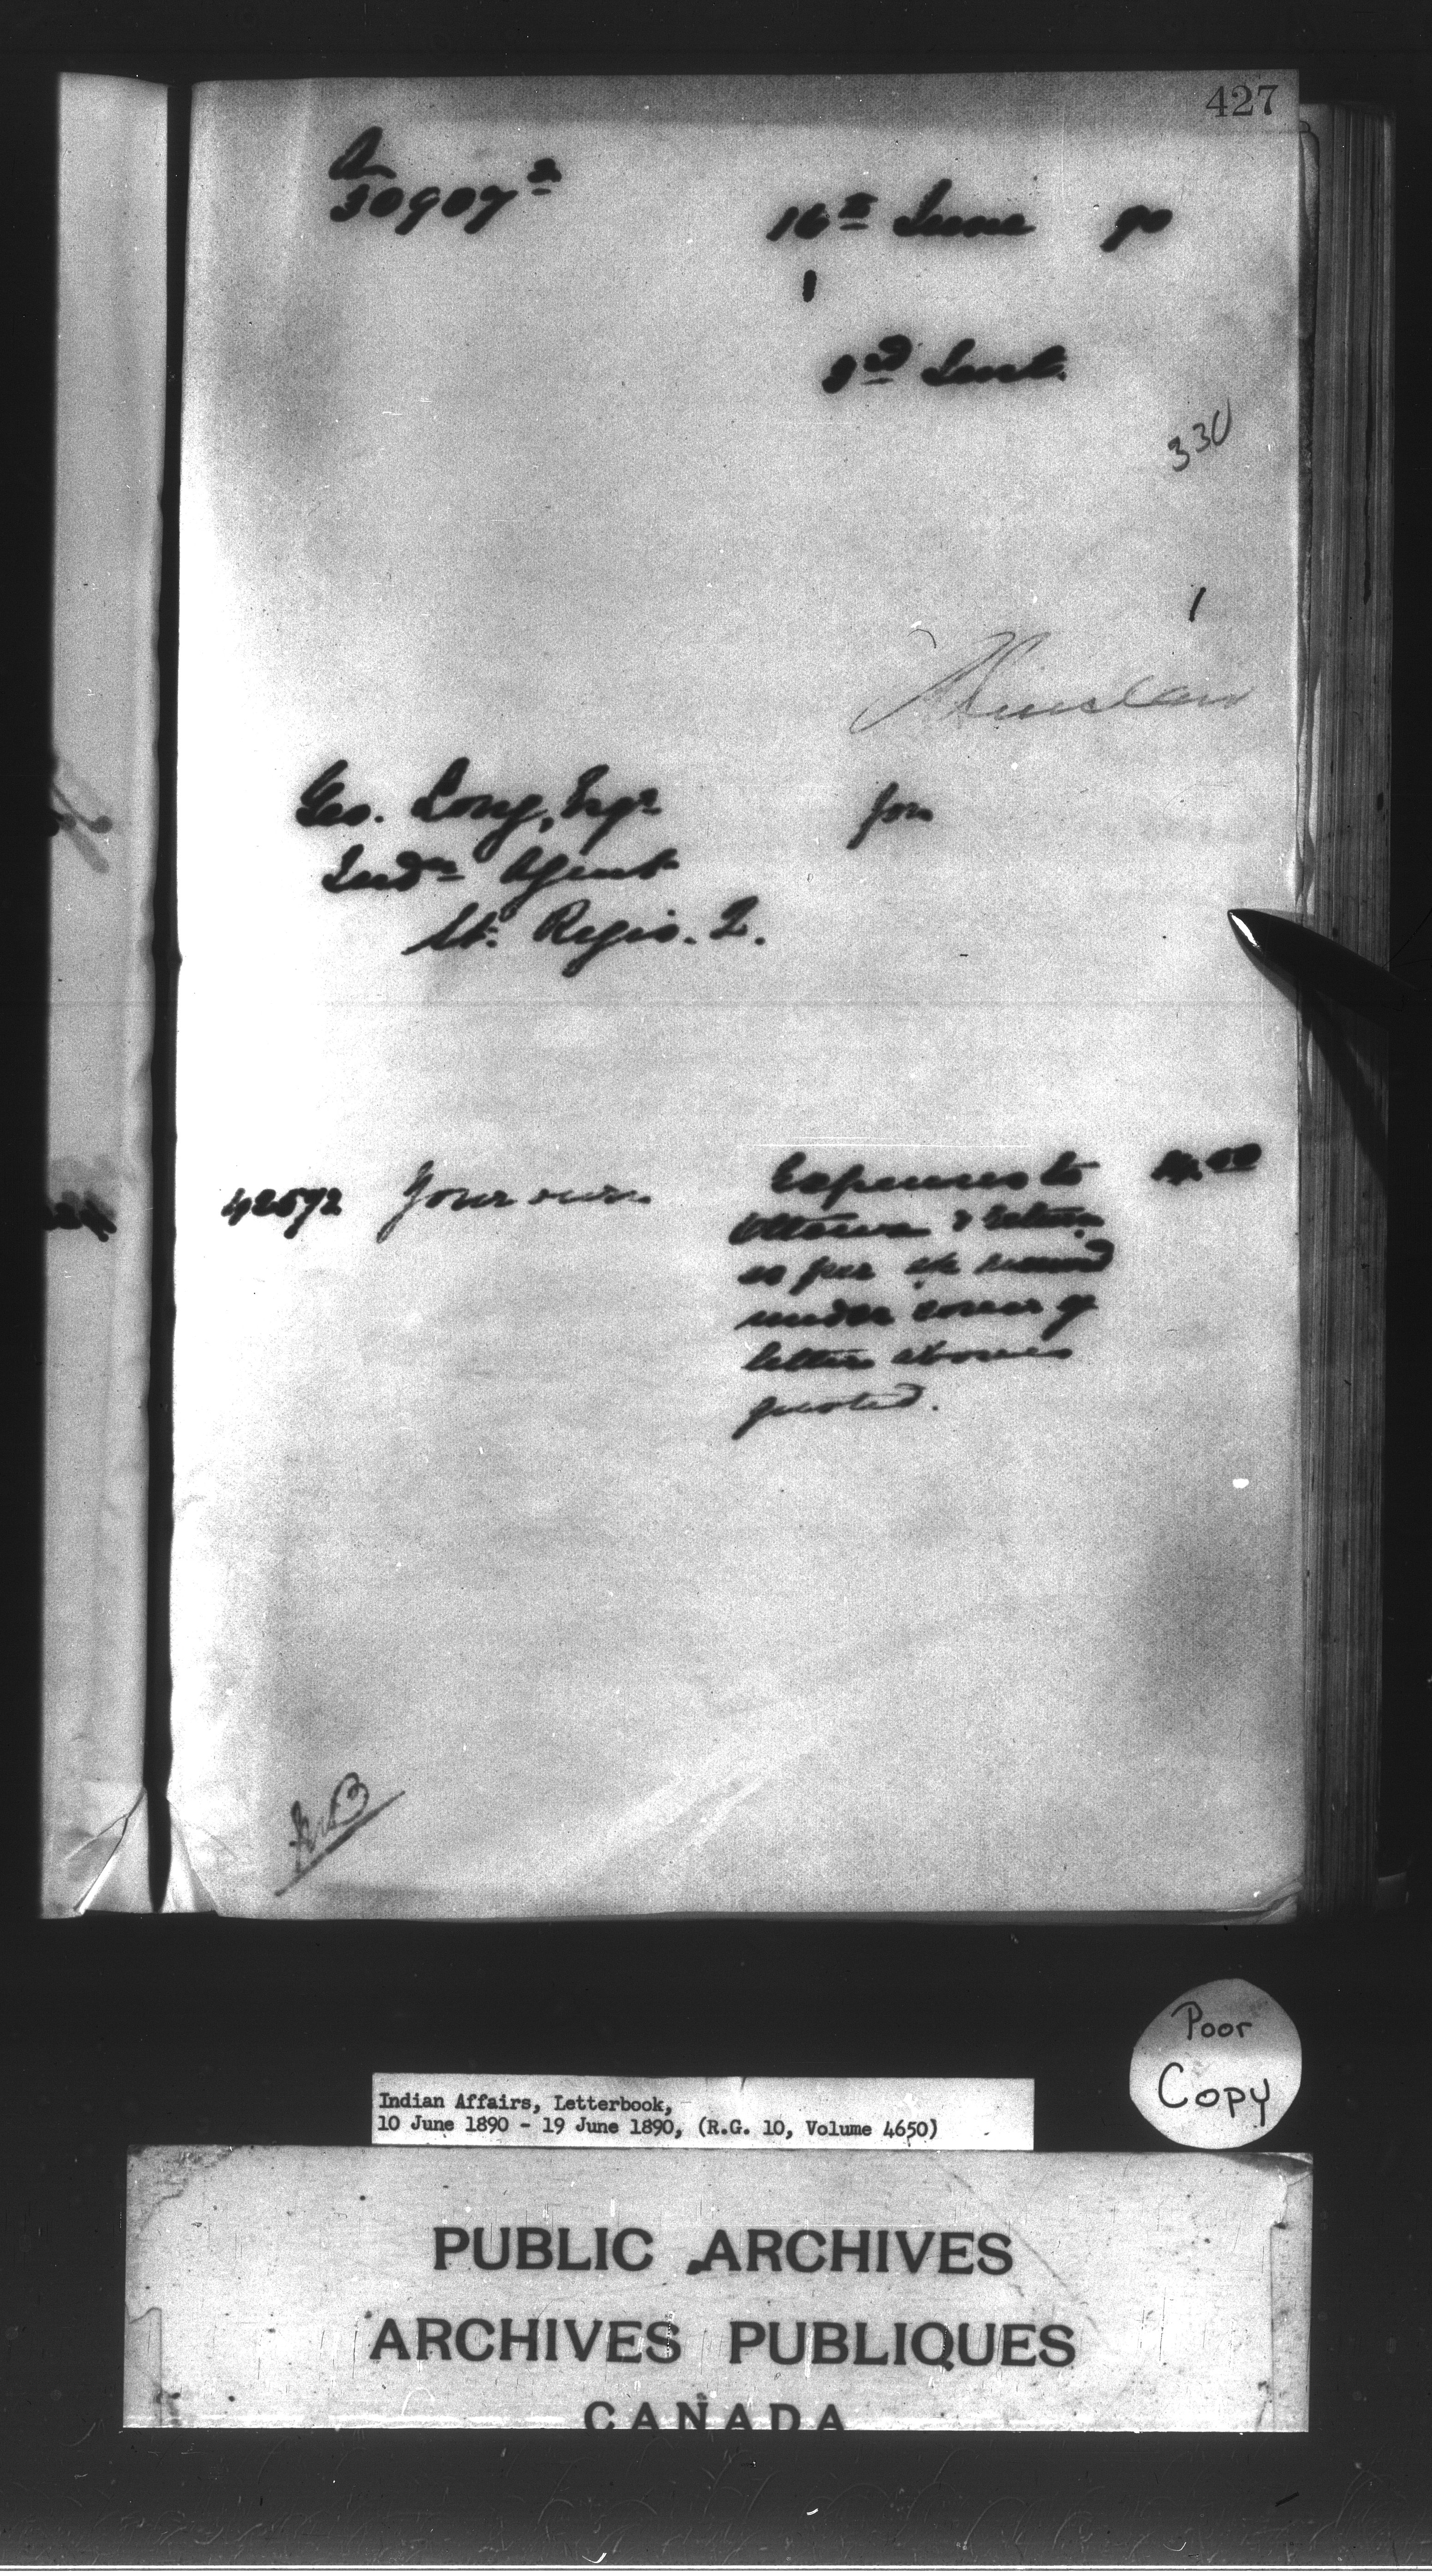 427
A
30907²
16th June 90
1
3rd Inst.
330
1
Geo. Long, Esqr
for
Indn Agent
St. Regis. Q.
42592 Your own Expenses to 14.00
Ottawa & return
as per a/c received
under cover of
letter above
quoted.
Poor
Copy
Indian Affairs, Letterbook,
10 June 1890 - 19 June 1890, (R.G. 10, Volume 4650)
PUBLIC ARCHIVES
ARCHIVES PUBLIQUES
CANADA